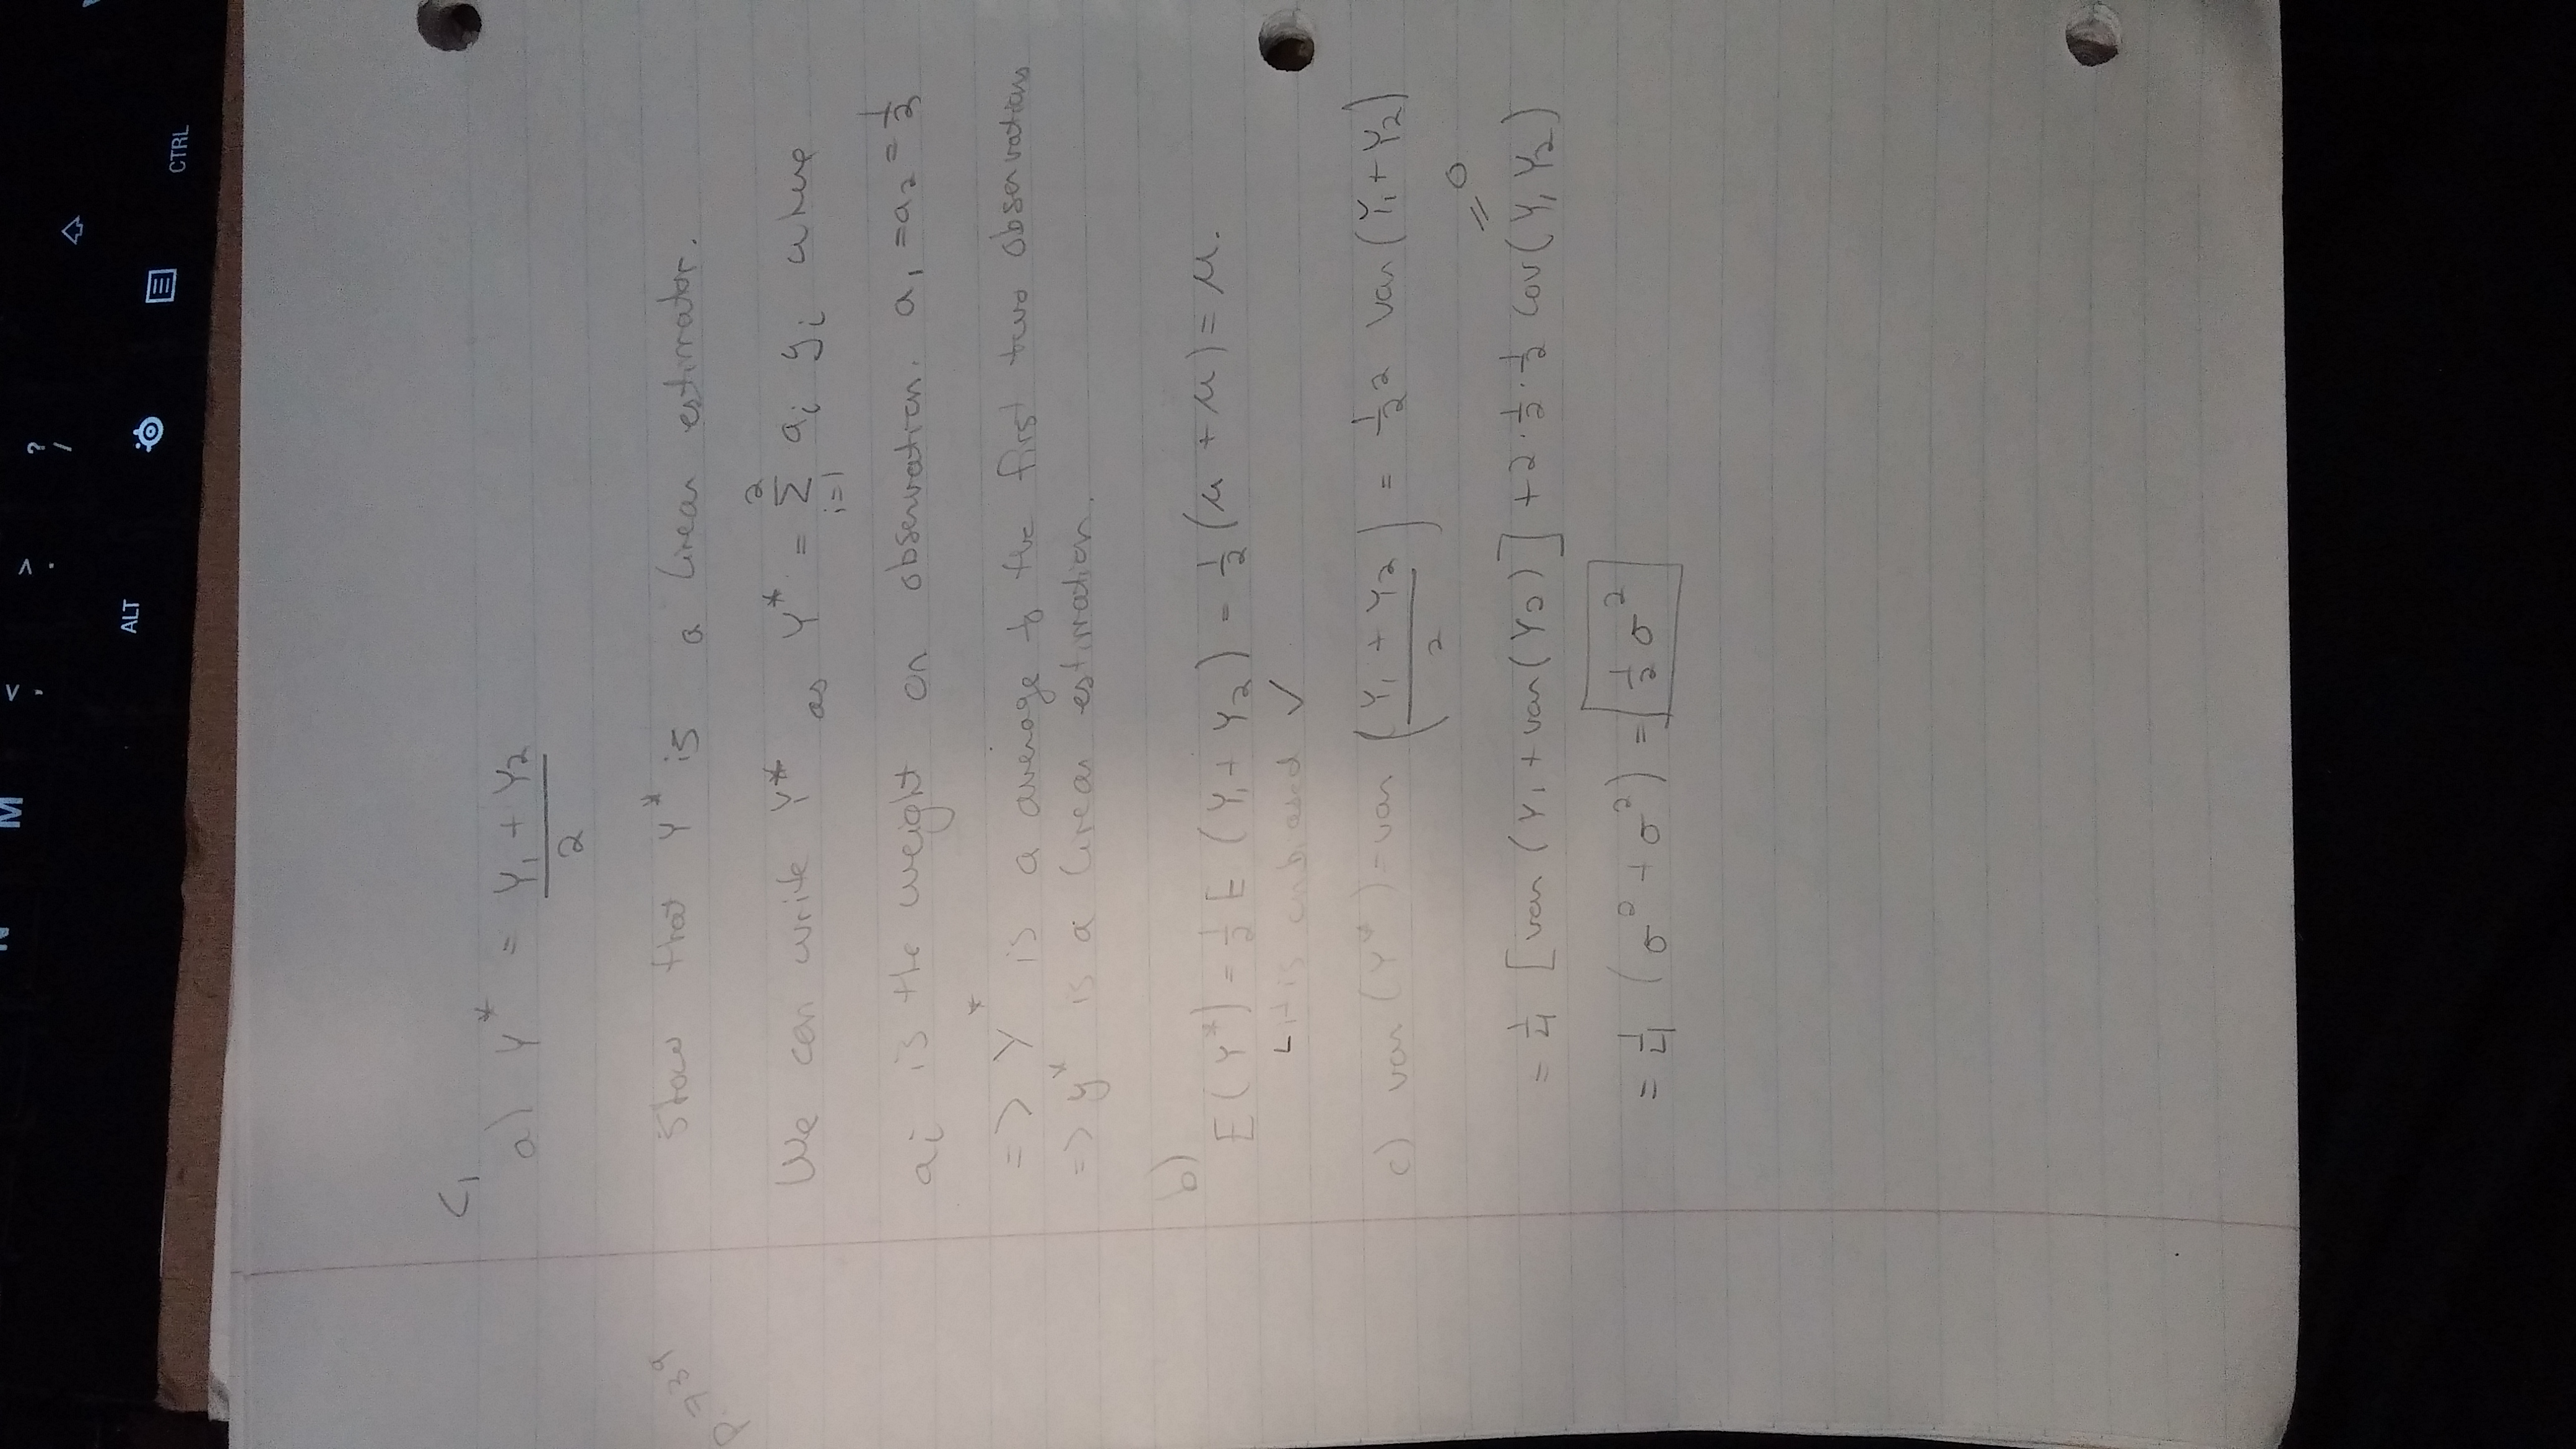 C1
a) Y* = Y₁ + Y₂ / 2
Show that Y* is a linear estimator.
We can write Y* as Y* = Σ_{i=1}^{2} a_i y_i where
a_i is the weight on observation. a₁ = a₂ = 1/2
=> Y* is a average to the first two observations
=> y* is a linear estimation.
b)
E(Y*) = 1/2 E(Y₁ + Y₂) = 1/2 (μ + μ) = μ.
it is unbiased ✓
c) var(Y*) = var(Y₁ + Y₂ / 2) = 1/2² var(Y₁ + Y₂)
= 0
= 1/4 [var(Y₁ + var(Y₂)] + 2 · 1/2 · 1/2 cov(Y₁ Y₂)
= 1/4 (σ² + σ²) = 1/2 σ²
CTRL
ALT
?
/
>
.
<
,
M
N